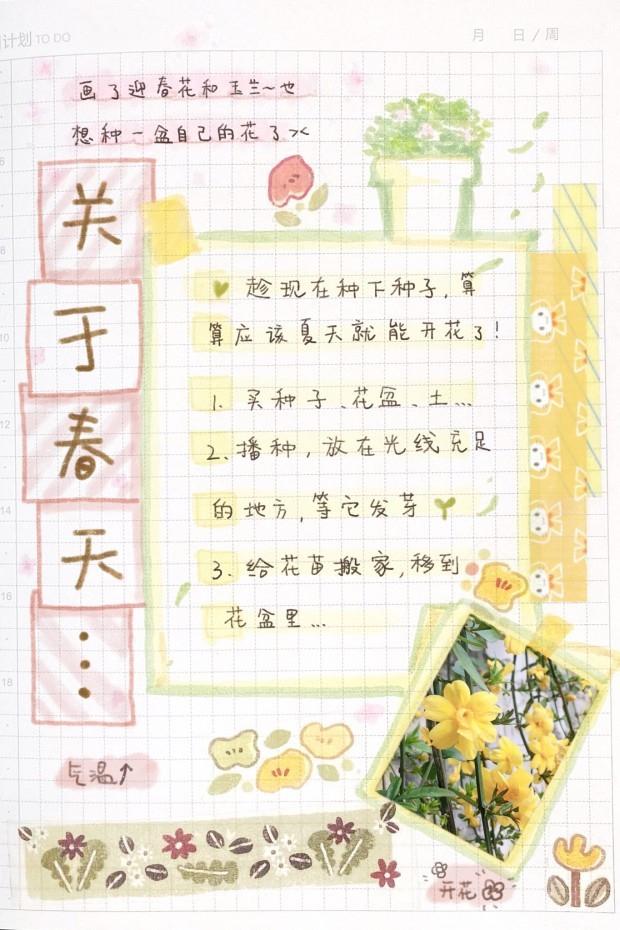 计划 TO DO
月 日/周
画了迎春花和玉兰~也
想种一盆自己的花了><
关于春天...
趁现在种下种子,算
算应该夏天就能开花了!
1. 买种子、花盆、土...
2. 播种,放在光线充足
的地方,等它发芽
3. 给花苗搬家,移到
花盆里...
气温↑
开花
6
8
10
12
14
16
18